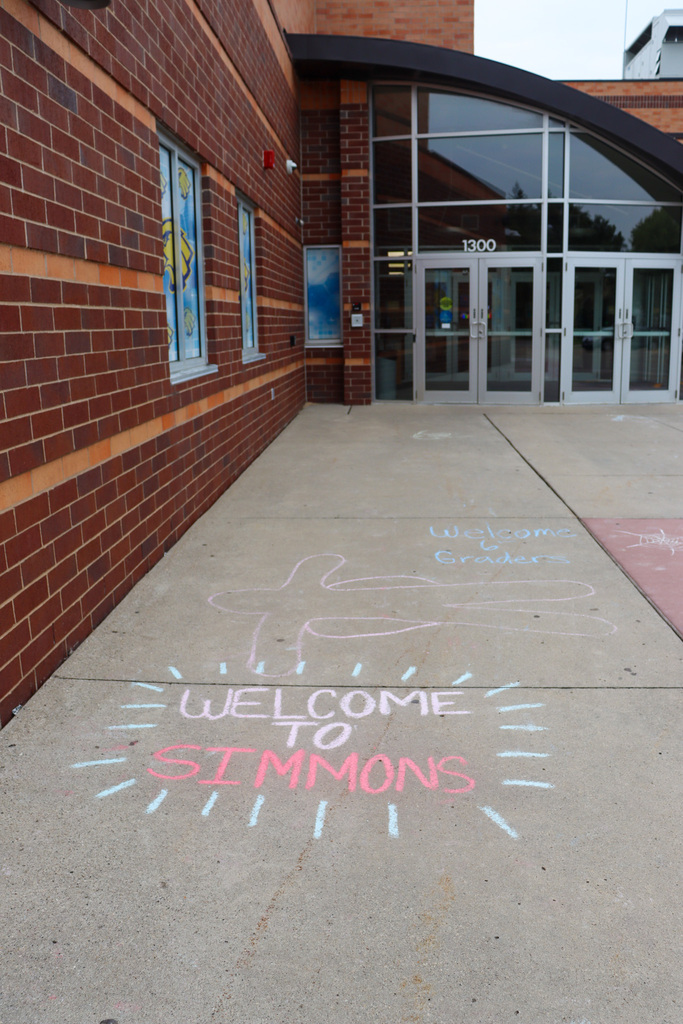 1300
Welcome
6
Graders
WELCOME
TO
SIMMONS